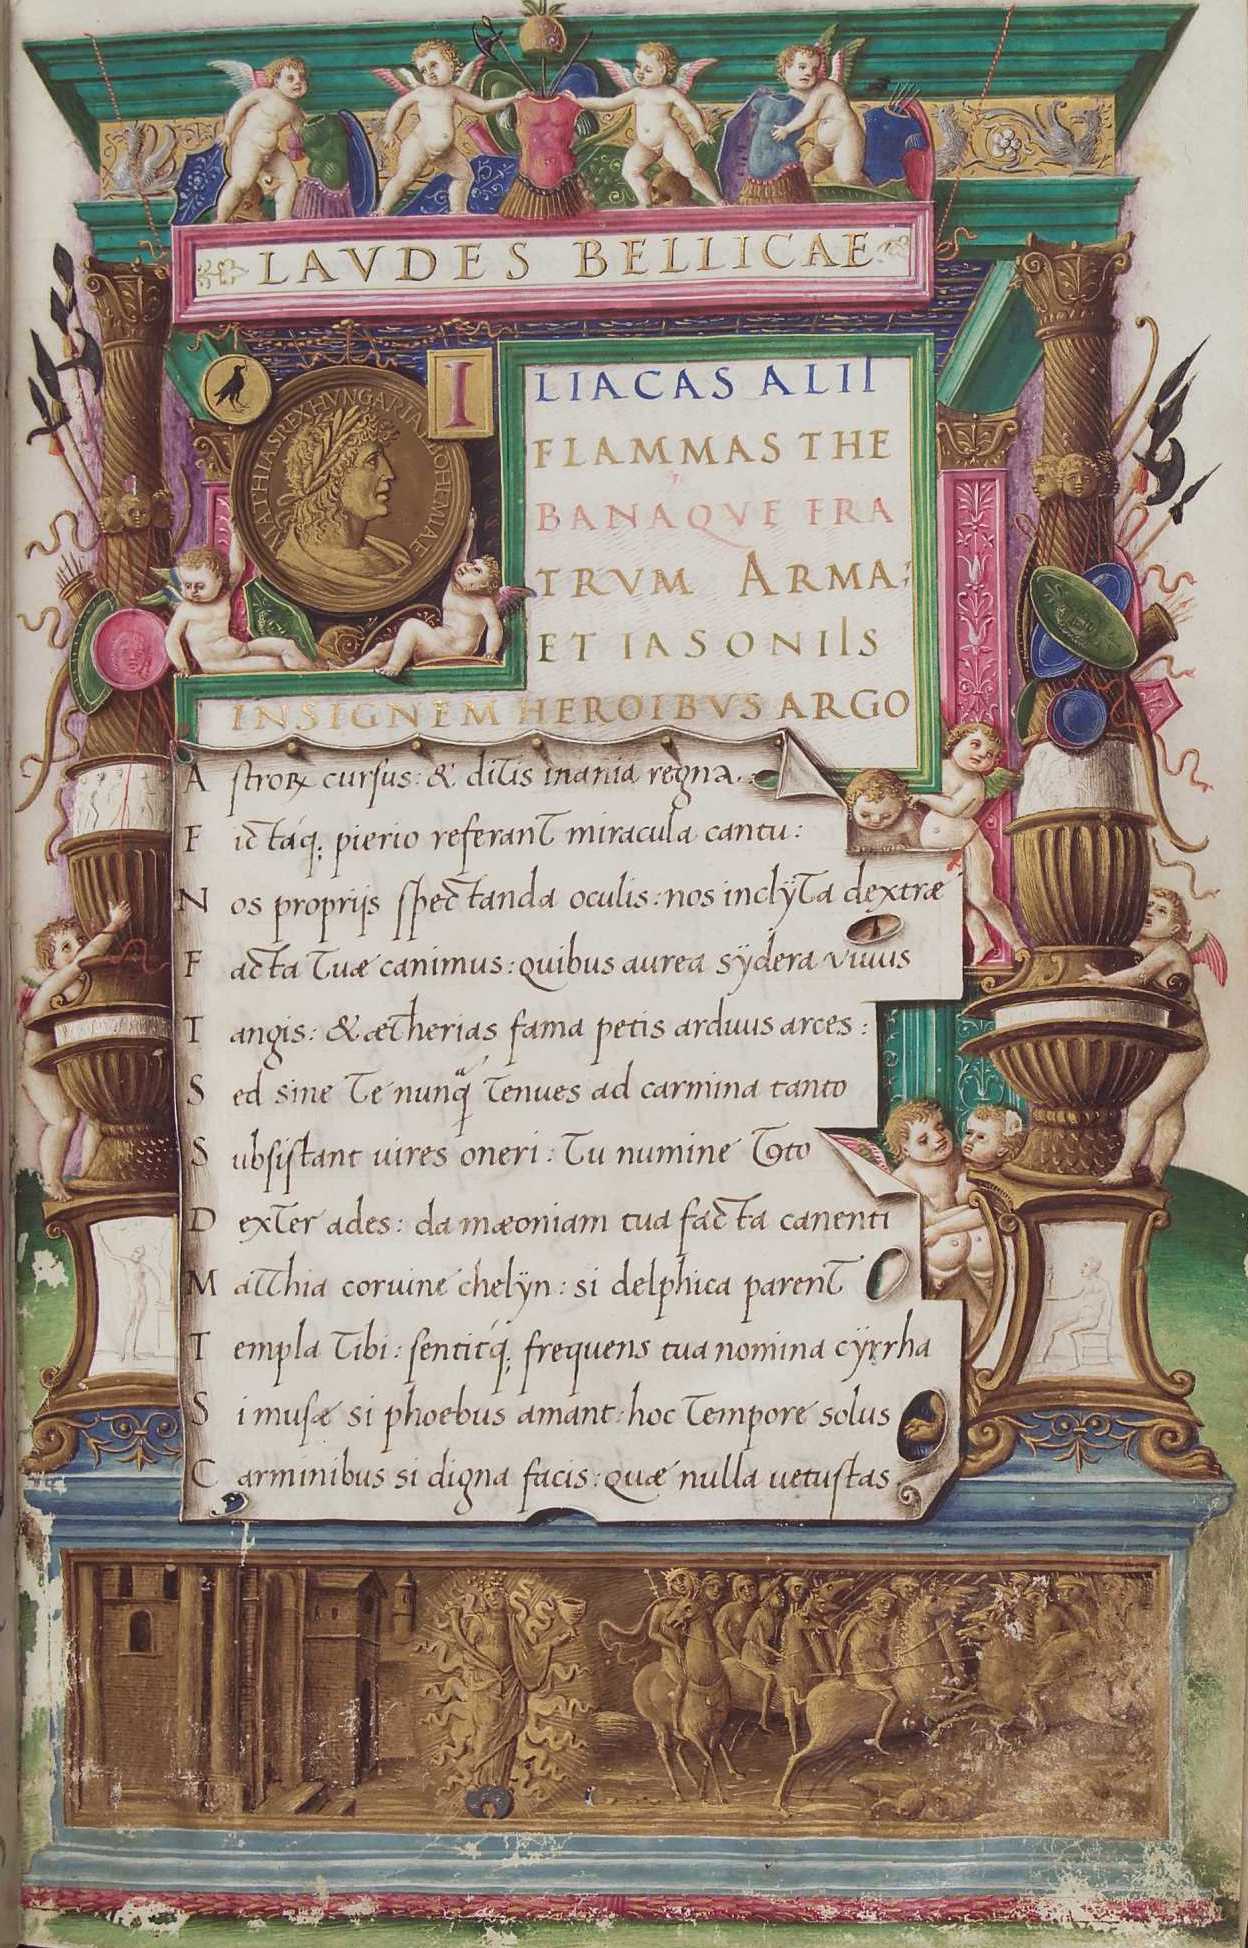 LAVDES BELLICAE
MATHIAS REX HVNGARIAE BOHEMIAE
I
LIACAS ALII
FLAMMAS THE
BANAQVE FRA
TRVM ARMA:
ET IASONIIS
INSIGNEM HEROIBVS ARGO
Astroꝝ cursus: & ditis inania regna.
Fictáq; pierio referant miracula cantu:
Nos proprijs spectanda oculis: nos inclÿta dextræ
Facta tuæ canimus: quibus aurea sÿdera viuus
Tangis: & ætherias fama petis arduus arces:
Sed sine te nunq̃ tenues ad carmina tanto
Subsistant uires oneri: Tu numine toto
Dexter ades: da mæoniam tua facta canenti
Matthia coruine chelÿn: si delphica parent
Templa tibi: sentitq́; frequens tua nomina cÿrrha
Si musæ si phoebus amant: hoc tempore solus
Carminibus si digna facis: quæ nulla uetustas